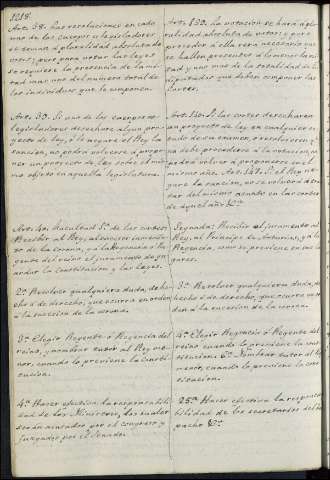 1218.
Art. 38. Las resoluciones en cada
uno de los cuerpos colegisladores
se toman á pluralidad absoluta de
votos; pero para votar las leyes
se requiere la presencia de la mi-
tad mas uno del número total de
los individuos que le componen.
Art. 39. Si uno de los cuerpos co-
legisladores desechare algun pro-
yecto de ley, ó le negare el Rey la
sancion, no podrá volverse á propo-
ner un proyecto de ley sobre el mis-
mo objeto en aquella legislatura.
Art. 40.
de las cortes
Recibir al Rey, al sucesor inmedia-
to de la corona, y á la Regencia ó Re-
gente del reino el juramento de gu-
ardar la Constitucion y las leyes.
2ª Resolver cualquiera duda, de he-
cho ó de derecho, que ocurra en orden
á la sucesion de la corona.
3ª Elegir Regente ó Regencia del
reino, y nombrar tutor al Rey me-
nor, cuando lo previene la Consti-
tucion.
4ª Hacer efectiva la responsabili-
dad de los Ministros, los cuales
serán acusados por el congreso y
juzgados por el Senado.
la votacion se hará á plu-
ralidad absoluta de votos; y para
proceder á ella será necesario que
se hallen presentes á lo menos la mi-
tad y uno mas de la totalidad de los
diputados que deben componer las
Cortes.
Si las cortes desecharen
un proyecto de ley en cualquier es-
tado de su examen, ó resolvieren, q. no
debe procederse á la votacion, no
podrá volver á proponerse en el
mismo año. Art. 147. Si el Rey ne-
gare la sancion, no se volverá á tra-
tar del mismo asunto en las cortes
de aquel año &c.
Segunda: Recibir el juramento al
Rey, al Príncipe de Asturias, y á la
Regencia, como se previene en sus lu-
gares.
3ª Resolver cualquiera duda, de
hecho ó de derecho, que ocurra en or-
den á la sucesion de la corona.
4ª Elegir Regencia ó Regente del
reino cuando lo previene la cons-
titucion. 6ª Nombrar tutor al Rey
menor, cuando lo previene la cons-
titucion.
25ª Hacer efectiva la responsa-
bilidad de los secretarios del Des-
pacho &c.